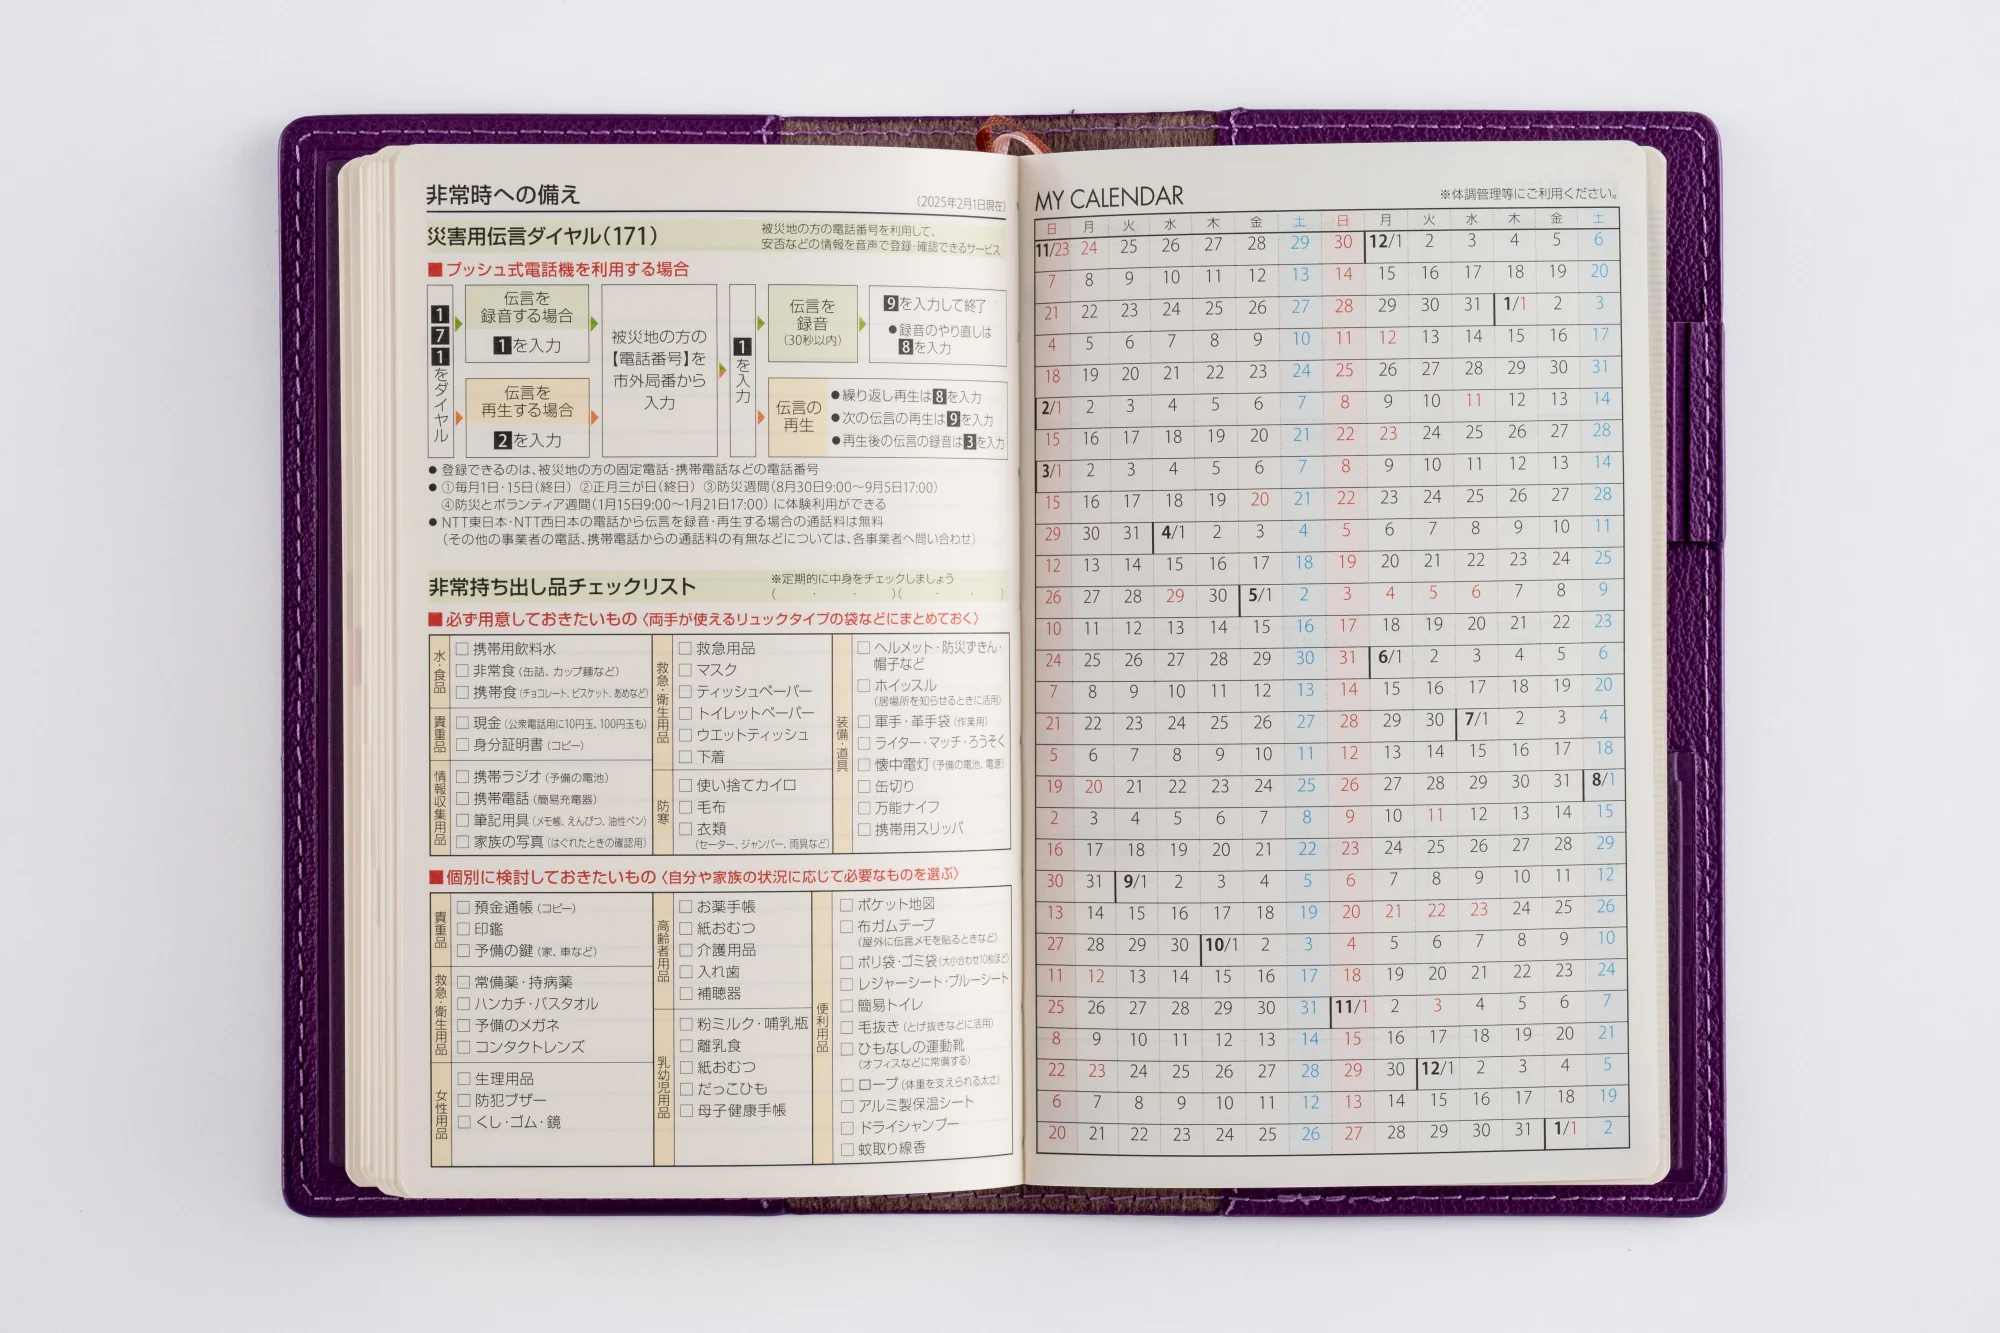 非常時への備え
(2025年2月1日現在)
災害用伝言ダイヤル(171)
被災地の方の電話番号を利用して、
安否などの情報を音声で登録・確認できるサービス
■プッシュ式電話機を利用する場合
171をダイヤル
伝言を
録音する場合
1を入力
伝言を
再生する場合
2を入力
被災地の方の
【電話番号】を
市外局番から
入力
1を入力
伝言を
録音
(30秒以内)
9を入力して終了
●録音のやり直しは
8を入力
伝言の
再生
●繰り返し再生は8を入力
●次の伝言の再生は9を入力
●再生後の伝言の録音は3を入力
●登録できるのは、被災地の方の固定電話・携帯電話などの電話番号
●①毎月1日・15日(終日) ②正月三が日(終日) ③防災週間(8月30日9:00〜9月5日17:00)
④防災とボランティア週間(1月15日9:00〜1月21日17:00) に体験利用ができる
●NTT東日本・NTT西日本の電話から伝言を録音・再生する場合の通話料は無料
(その他の事業者の電話、携帯電話からの通話料の有無などについては、各事業者へ問い合わせ)
非常持ち出し品チェックリスト
※定期的に中身をチェックしましょう
( ・ ・ )( ・ ・ )
■必ず用意しておきたいもの〈両手が使えるリュックタイプの袋などにまとめておく〉
水・食品
□携帯用飲料水
□非常食(缶詰、カップ麺など)
□携帯食(チョコレート、ビスケット、あめなど)
貴重品
□現金(公衆電話用に10円玉、100円玉も)
□身分証明書(コピー)
情報収集用品
□携帯ラジオ(予備の電池)
□携帯電話(簡易充電器)
□筆記用具(メモ帳、えんぴつ、油性ペン)
□家族の写真(はぐれたときの確認用)
救急・衛生用品
□救急用品
□マスク
□ティッシュペーパー
□トイレットペーパー
□ウエットティッシュ
□下着
防寒
□使い捨てカイロ
□毛布
□衣類
(セーター、ジャンパー、雨具など)
装備・道具
□ヘルメット・防災ずきん・
帽子など
□ホイッスル
(居場所を知らせるときに活用)
□軍手・革手袋(作業用)
□ライター・マッチ・ろうそく
□懐中電灯(予備の電池、電源)
□缶切り
□万能ナイフ
□携帯用スリッパ
■個別に検討しておきたいもの〈自分や家族の状況に応じて必要なものを選ぶ〉
貴重品
□預金通帳(コピー)
□印鑑
□予備の鍵(家、車など)
救急・衛生用品
□常備薬・持病薬
□ハンカチ・バスタオル
□予備のメガネ
□コンタクトレンズ
女性用品
□生理用品
□防犯ブザー
□くし・ゴム・鏡
高齢者用品
□お薬手帳
□紙おむつ
□介護用品
□入れ歯
□補聴器
乳幼児用品
□粉ミルク・哺乳瓶
□離乳食
□紙おむつ
□だっこひも
□母子健康手帳
便利用品
□ポケット地図
□布ガムテープ
(屋外に伝言メモを貼るときなど)
□ポリ袋・ゴミ袋(大小合わせ10枚ほど)
□レジャーシート・ブルーシート
□簡易トイレ
□毛抜き(とげ抜きなどに活用)
□ひもなしの運動靴
(オフィスなどに常備する)
□ロープ(体重を支えられる太さ)
□アルミ製保温シート
□ドライシャンプー
□蚊取り線香
MY CALENDAR
※体調管理等にご利用ください。
日 月 火 水 木 金 土 日 月 火 水 木 金 土
11/23 24 25 26 27 28 29 30 12/1 2 3 4 5 6
7 8 9 10 11 12 13 14 15 16 17 18 19 20
21 22 23 24 25 26 27 28 29 30 31 1/1 2 3
4 5 6 7 8 9 10 11 12 13 14 15 16 17
18 19 20 21 22 23 24 25 26 27 28 29 30 31
2/1 2 3 4 5 6 7 8 9 10 11 12 13 14
15 16 17 18 19 20 21 22 23 24 25 26 27 28
3/1 2 3 4 5 6 7 8 9 10 11 12 13 14
15 16 17 18 19 20 21 22 23 24 25 26 27 28
29 30 31 4/1 2 3 4 5 6 7 8 9 10 11
12 13 14 15 16 17 18 19 20 21 22 23 24 25
26 27 28 29 30 5/1 2 3 4 5 6 7 8 9
10 11 12 13 14 15 16 17 18 19 20 21 22 23
24 25 26 27 28 29 30 31 6/1 2 3 4 5 6
7 8 9 10 11 12 13 14 15 16 17 18 19 20
21 22 23 24 25 26 27 28 29 30 7/1 2 3 4
5 6 7 8 9 10 11 12 13 14 15 16 17 18
19 20 21 22 23 24 25 26 27 28 29 30 31 8/1
2 3 4 5 6 7 8 9 10 11 12 13 14 15
16 17 18 19 20 21 22 23 24 25 26 27 28 29
30 31 9/1 2 3 4 5 6 7 8 9 10 11 12
13 14 15 16 17 18 19 20 21 22 23 24 25 26
27 28 29 30 10/1 2 3 4 5 6 7 8 9 10
11 12 13 14 15 16 17 18 19 20 21 22 23 24
25 26 27 28 29 30 31 11/1 2 3 4 5 6 7
8 9 10 11 12 13 14 15 16 17 18 19 20 21
22 23 24 25 26 27 28 29 30 12/1 2 3 4 5
6 7 8 9 10 11 12 13 14 15 16 17 18 19
20 21 22 23 24 25 26 27 28 29 30 31 1/1 2